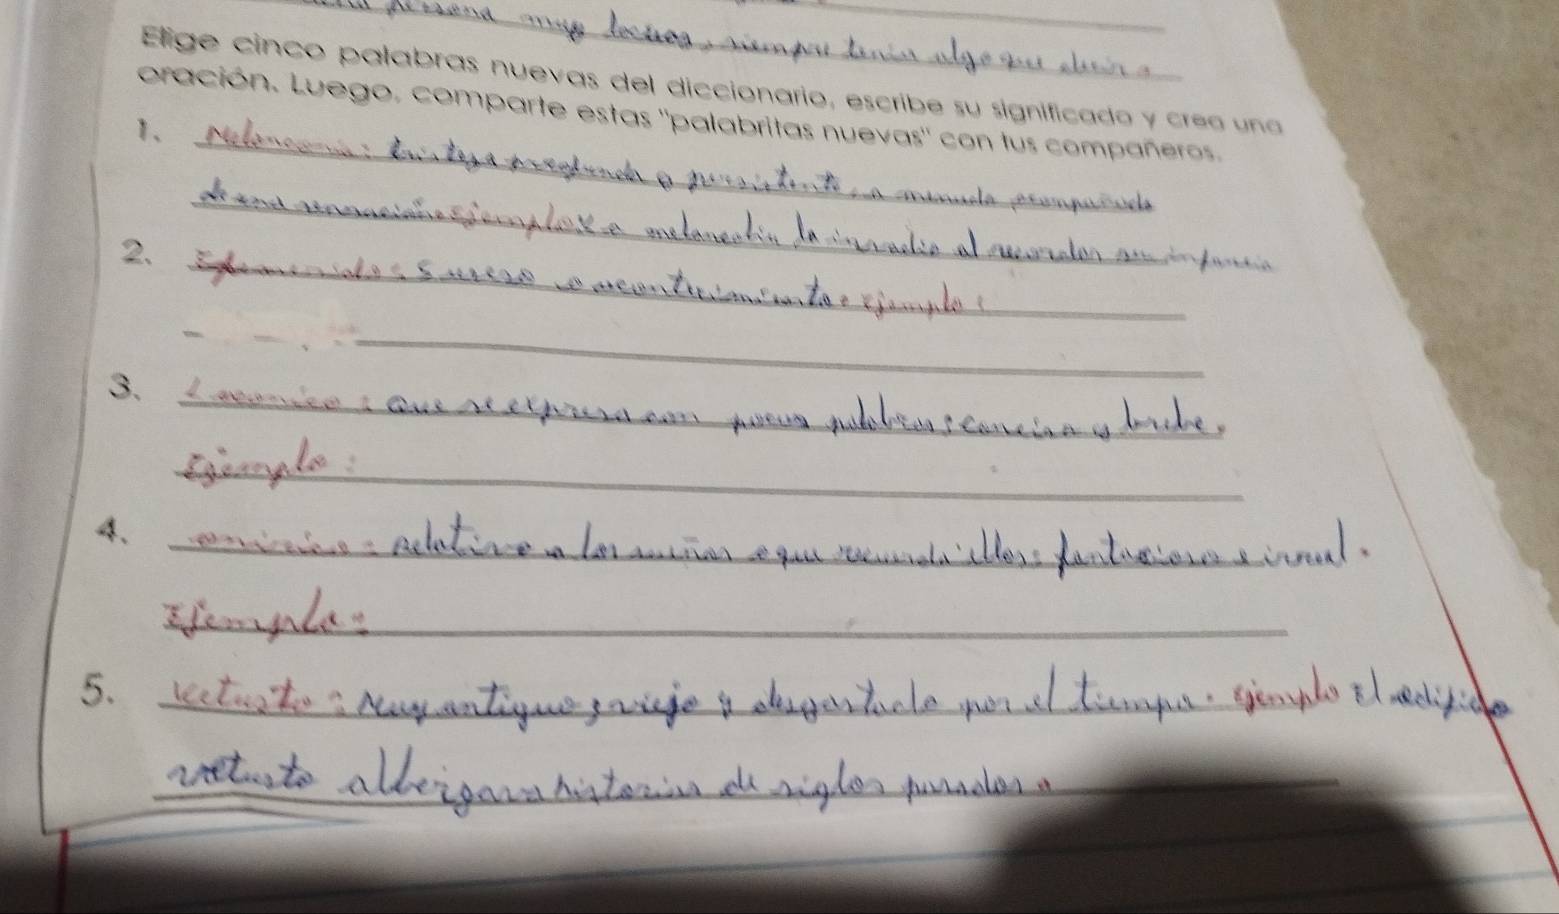 persona muy locuos, siempre tenia algo que decir.
Elige cinco palabras nuevas del diccionario, escribe su significado y crea una
oración. Luego, comparte estas "palabritas nuevas" con tus compañeros.
1. Melancomia: tristeza profunda y persistente, a menudo acompañada
de ejemplo: la melancolia la invadio al recordar su infancia
2. suceso o acontecimiento: ejemplo:
3. Laconico: Que se expresa con pocas palabras: concian y brebe.
Ejemplo:
4. onirico: relativo a los sueños o que recuerda ellos: fantasioso e irreal.
Ejemplo:
5. vetusto: Muy antiguo, viejo y desgastado por el tiempo. ejemplo El edificio
vetusto albergava historias de siglos pasados.